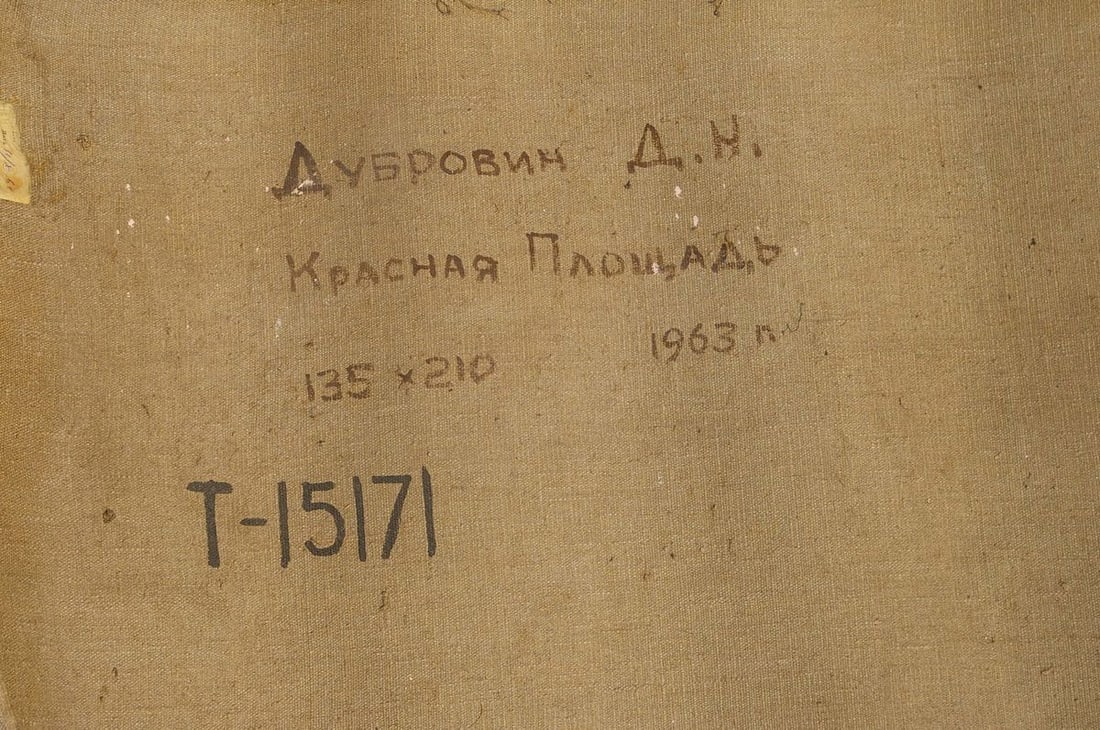 Дубровин Д.Н.
Красная Площадь
135 × 210 1963 г.
Т-15171